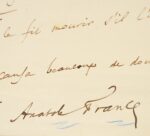 le fit mourir s'il l'
causa beaucoup de dou
Anatole France